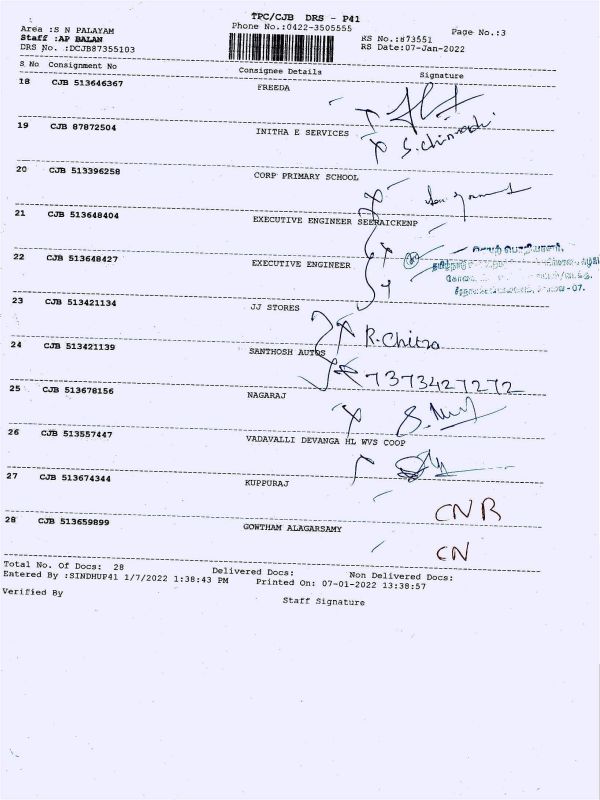 TPC/CJB DRS - P41
Area :S N PALAYAM Phone No.:0422-3505555 Page No.:3
Staff :AP BALAN RS No.:873551
DRS No. :DCJB87355103 RS Date:07-Jan-2022
S No Consignment No Consignee Details Signature
18 CJB 513646367 FREEDA
19 CJB 87872504 INITHA E SERVICES
20 CJB 513396258 CORP PRIMARY SCHOOL
21 CJB 513648404 EXECUTIVE ENGINEER SEERAICKENP
22 CJB 513648427 EXECUTIVE ENGINEER
23 CJB 513421134 JJ STORES
R.Chitra
24 CJB 513421139 SANTHOSH AUTOS
7373427272
25 CJB 513678156 NAGARAJ
26 CJB 513557447 VADAVALLI DEVANGA HL WVS COOP
27 CJB 513674344 KUPPURAJ
CNR
28 CJB 513659899 GOWTHAM ALAGARSAMY
CN
Total No. Of Docs: 28 Delivered Docs: Non Delivered Docs:
Entered By :SINDHUP41 1/7/2022 1:38:43 PM Printed On: 07-01-2022 13:38:57
Verified By Staff Signature